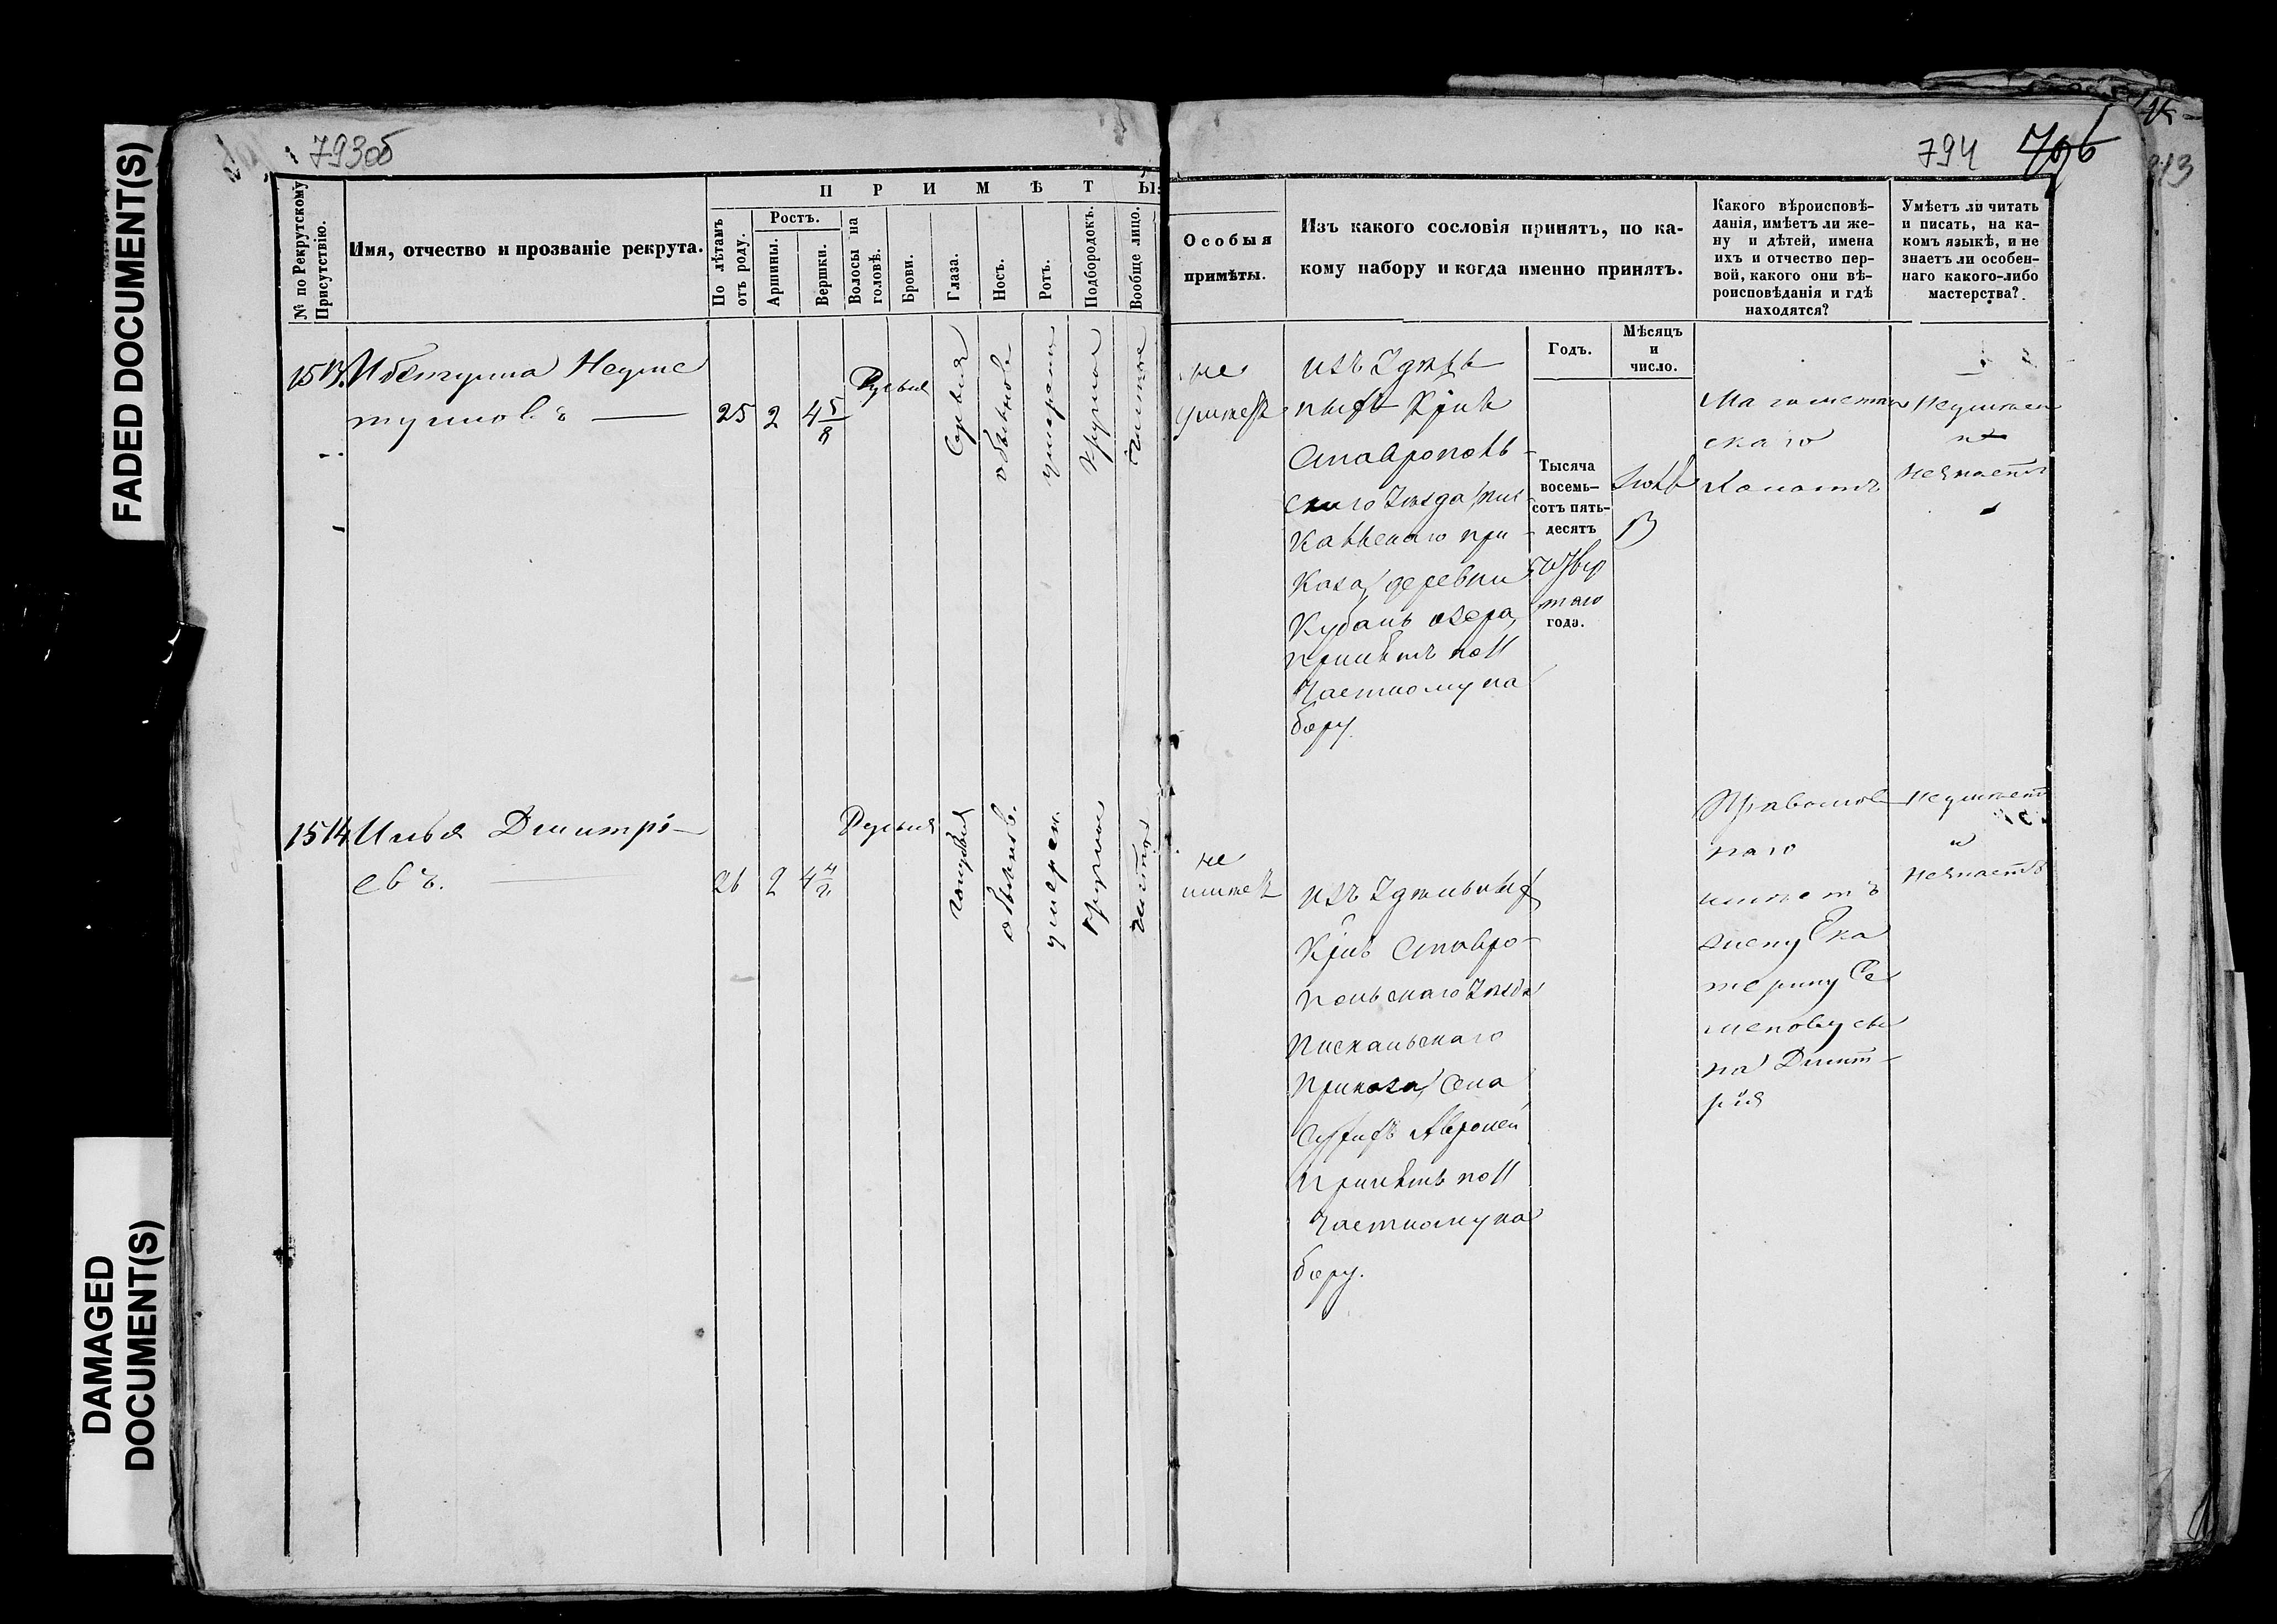 FADED DOCUMENT(S)
DAMAGED
DOCUMENT(S)
793об
794
796
№ по Рекрутскому
Присутствію.
Имя, отчество и прозваніе рекрута.
ПРИМѢТЫ:
По лѣтамъ
отъ роду.
Ростъ.
Аршины.
Вершки.
Волосы на
головѣ.
Брови.
Глаза.
Носъ.
Ротъ.
Подбородокъ.
Вообще лицо.
Особыя
примѣты.
Изъ какого сословія принятъ, по ка-
кому набору и когда именно принятъ.
Годъ.
Мѣсяцъ
и
число.
Какого вѣроисповѣ-
данія, имѣетъ ли же-
ну и дѣтей, имена
ихъ и отчество пер-
вой, какого они вѣ-
роисповѣданія и гдѣ
находятся?
Умѣетъ ли читать
и писать, на ка-
комъ языкѣ, и не
знаетъ ли особен-
наго какого-либо
мастерства?
1513.
25
2
4 5/8
Русыя
Серыя
обыкнов
умерен
круглой
чистое
не
имѣет
изъ Удѣль
ныхъ Кр̃нъ
Ставрополь-
скаго Уѣзда
кальскаго При-
каза деревни
озера
принятъ по 11
Частному на
бору.
Тысяча
восемь-
сотъ пять-
десятъ
четвер
таго
года.
Іюль
13
Магометан
скаго
Холостъ
Неумѣетъ
и
Незнаетъ
1514
Илья Дмитрі-
евъ.
26
2
4 4/8
Русыя
голубыя
обыкнов.
умерен.
круглой
чистое
не
имѣет
изъ Удѣльныхъ
Кр̃нъ Ставро-
польскаго Уѣзда
Пискальскаго
Приказа Села
принятъ по 11
Частному на
бору.
Православ
наго
имѣетъ
жену Ека
терину Се
менову сы
на Дмит-
рія
Неумѣетъ
и
Незнаетъ